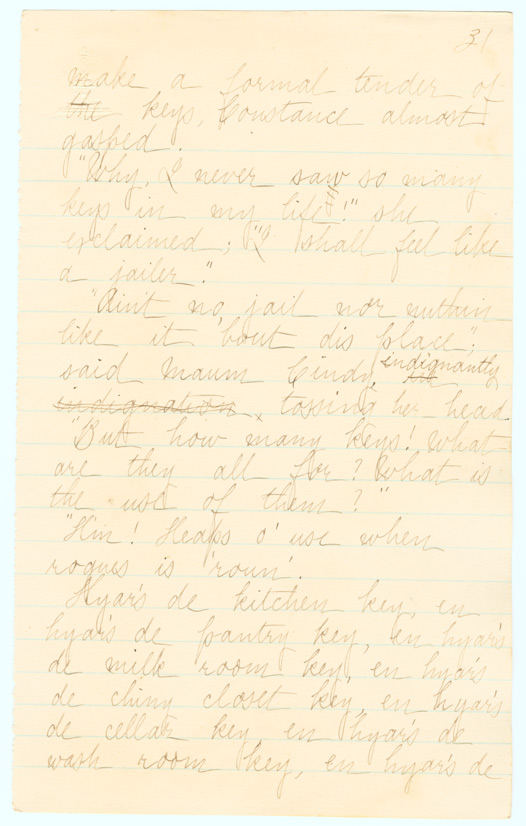 31
make a formal tender of
the keys, Constance almost
gasped.
"Why, I never saw so many
keys in my life!" she
exclaimed; "I shall feel like
a jailer."
"Ain't no jail nor nuthin
like it 'bout dis place,"
said Maum Cindy, indignantly
indignation, tossing her head
"But how many keys! What
are they all for? What is
the use of them?"
"Hin! Heaps o' use when
rogues is 'roun'.
Hyar's de kitchen key, en
hyar's de pantry key, en hyar's
de milk room key, en hyar's
de chiny closet key, en hyar's
de cellar key, en hyar's de
wash room key, en hyar's de